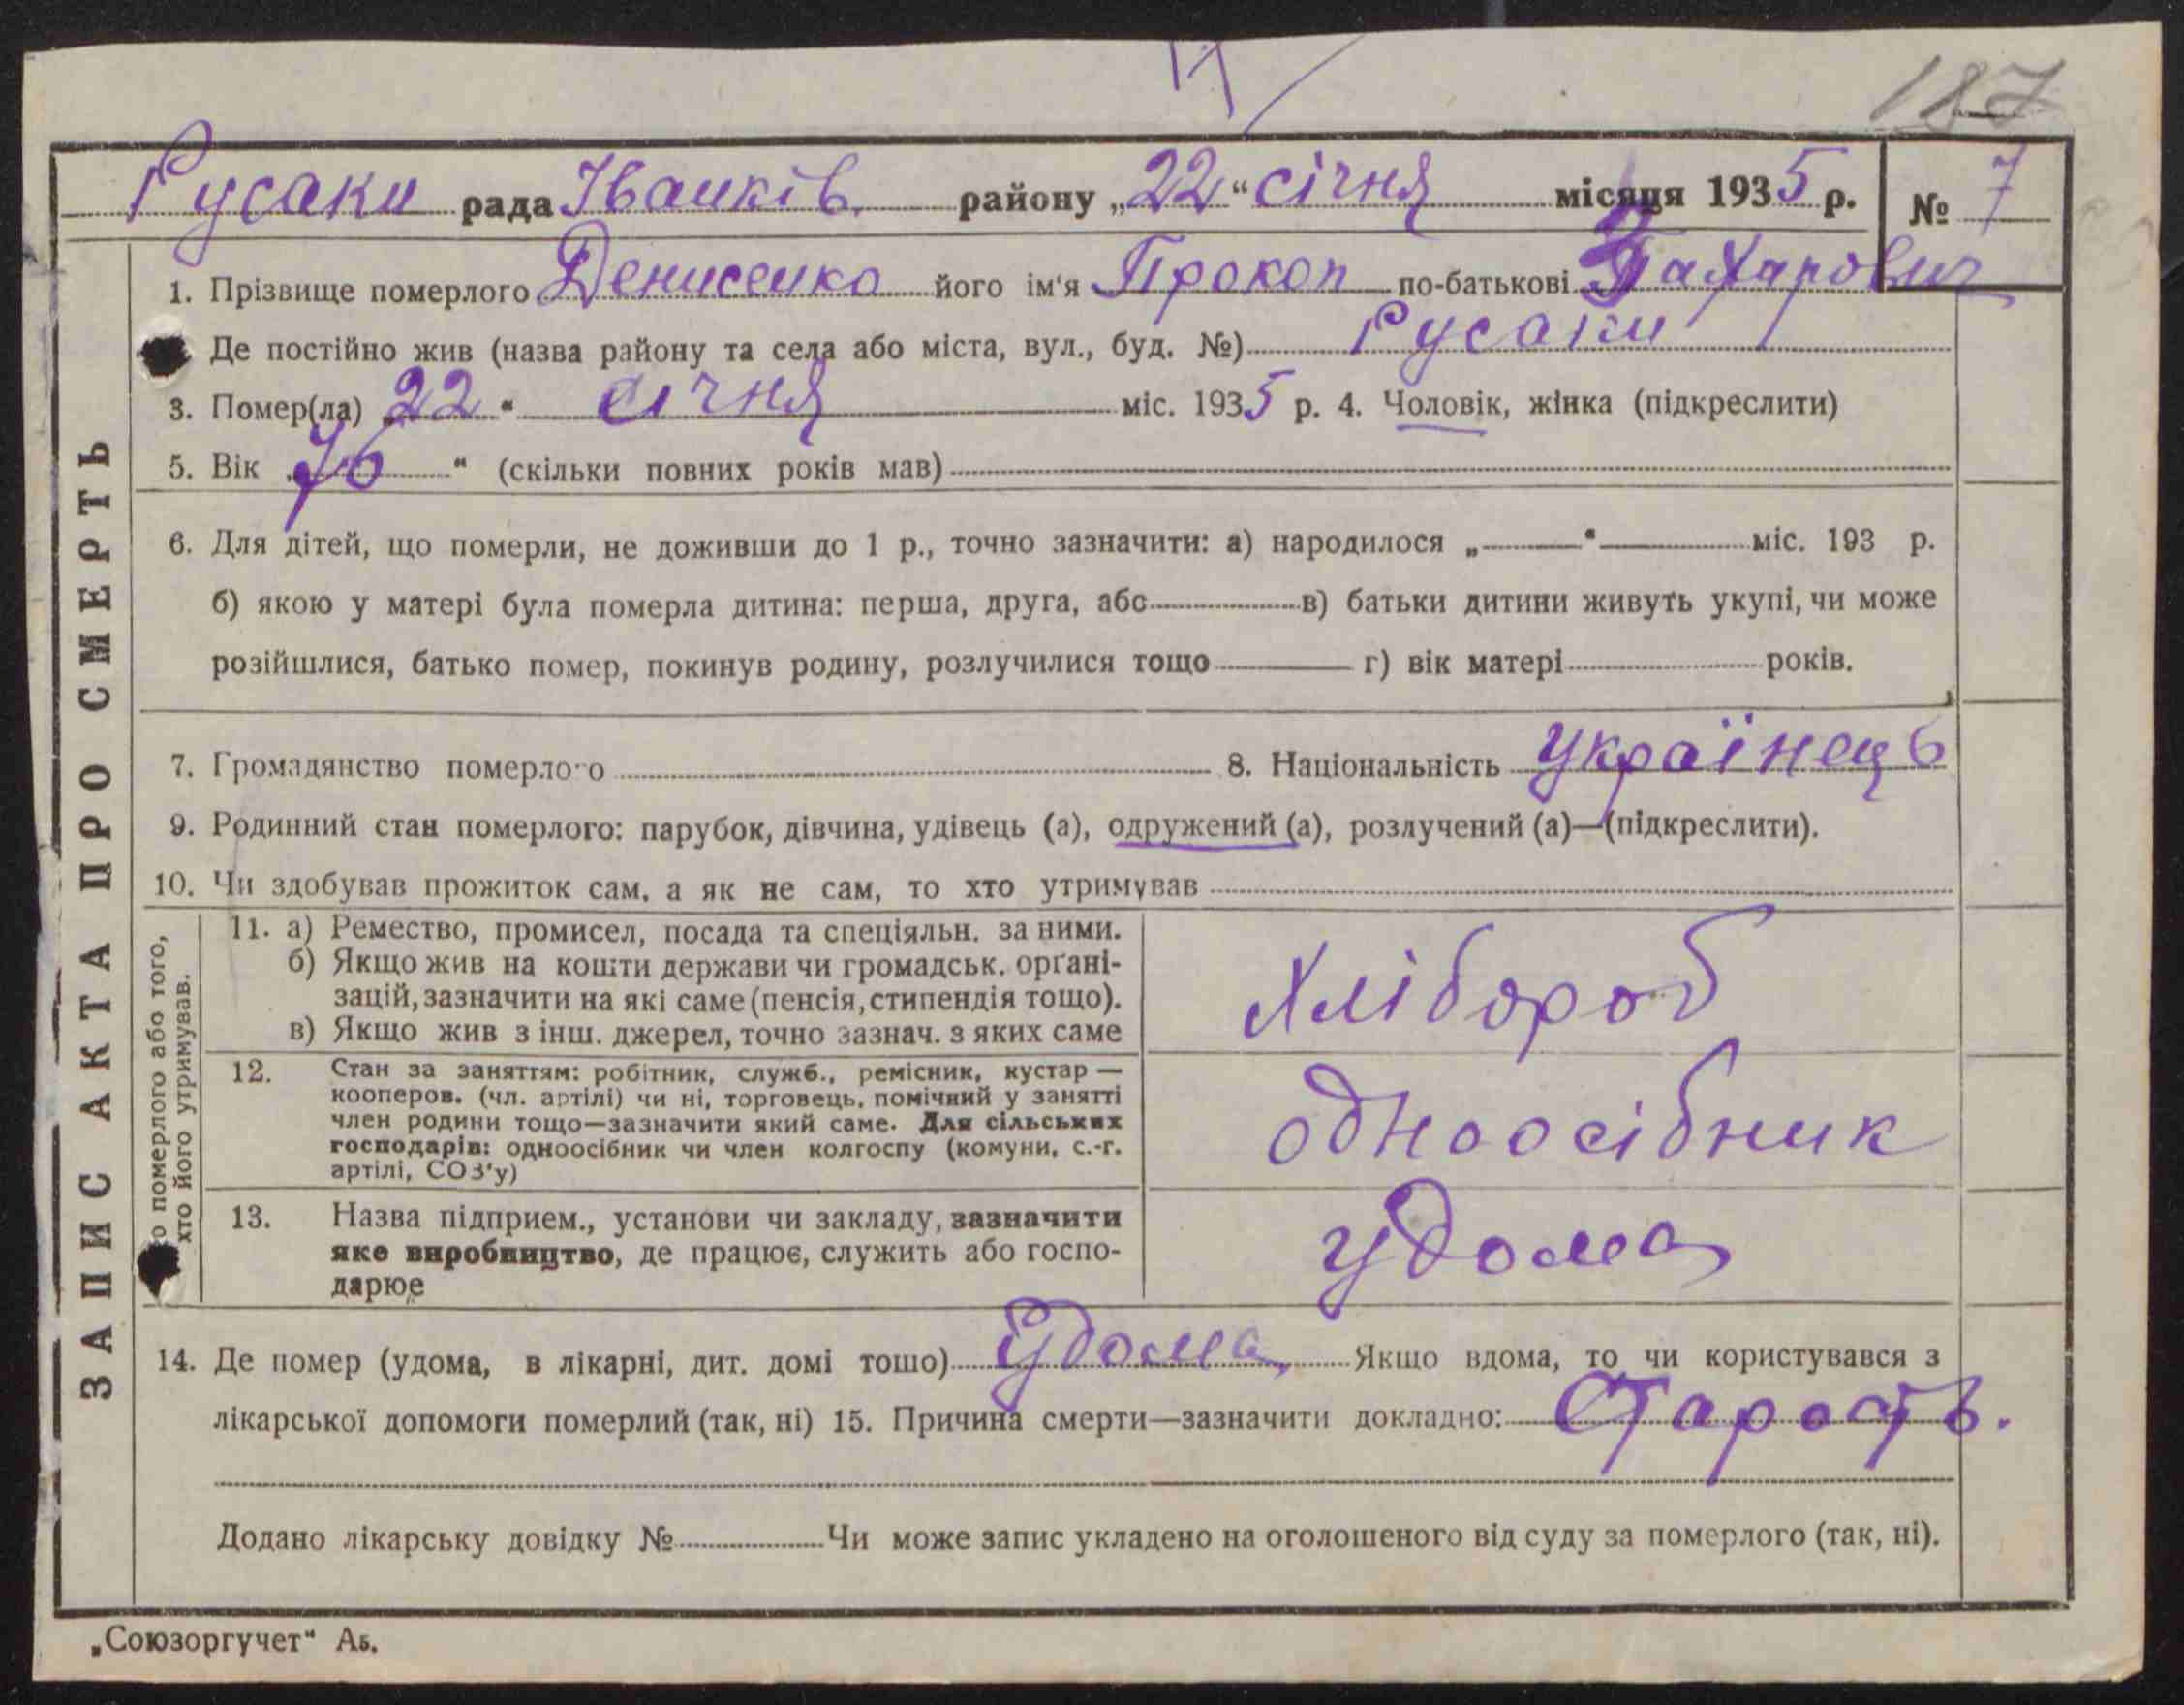 187
Русаки рада Іванків. району „22“ січня місяця 1935 р. № 7
1. Прізвище померлого Денисенко його ім'я Прокоп по-батькові Захарович
Де постійно жив (назва району та села або міста, вул., буд. №) Русаки
3. Помер(ла) „22“ січня міс. 1935 р. 4. Чоловік, жінка (підкреслити)
5. Вік „76“ (скільки повних років мав)
6. Для дітей, що померли, не доживши до 1 р., точно зазначити: а) народилося „—“— міс. 193 р.
б) якою у матері була померла дитина: перша, друга, або в) батьки дитини живуть укупі, чи може
розійшлися, батько помер, покинув родину, розлучилися тощо — г) вік матері років.
7. Громадянство померлого 8. Національність Українець
9. Родинний стан померлого: парубок, дівчина, удівець (а), одружений (а), розлучений (а)—(підкреслити).
10. Чи здобував прожиток сам, а як не сам, то хто утримував
11. а) Ремество, промисел, посада та спеціяльн. за ними.
б) Якщо жив на кошти держави чи громадськ. орґані-
зацій, зазначити на які саме (пенсія, стипендія тощо).
в) Якщо жив з інш. джерел, точно зазнач. з яких саме
Хлібороб
12. Стан за заняттям: робітник, служб., ремісник, кустар —
кооперов. (чл. артілі) чи ні, торговець, помічний у занятті
член родини тощо—зазначити який саме. Для сільських
господарів: одноосібник чи член колгоспу (комуни, с.-г.
артілі, СОЗ'у)
одноосібник
13. Назва підприєм., установи чи закладу, зазначити
яке виробництво, де працює, служить або госпо-
дарює
удома
14. Де помер (удома, в лікарні, дит. домі тощо) Удома Якщо вдома, то чи користувався з
лікарської допомоги померлий (так, ні) 15. Причина смерти—зазначити докладно: Старость.
Додано лікарську довідку № Чи може запис укладено на оголошеного від суду за померлого (так, ні).
„Союзоргучет“ А5.
ЗАПИС АКТА ПРО СМЕРТЬ
померлого або того,
хто його утримував.